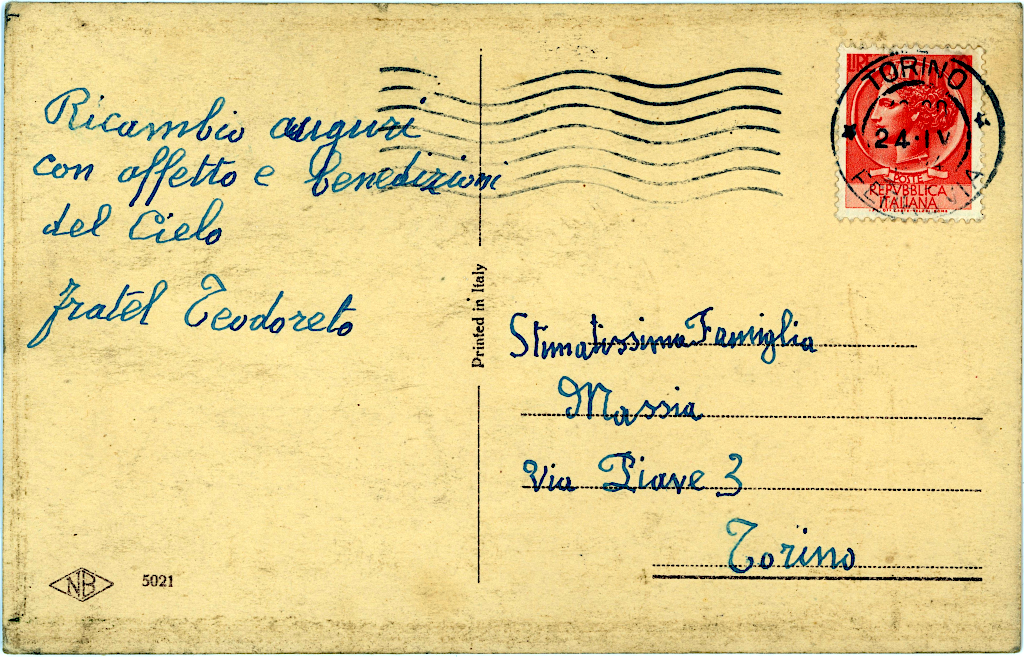 Ricambio auguri
con affetto e benedizioni
del Cielo
Fratel Teodoreto
NB
5021
Printed in Italy
LIRE
POSTE
REPVBBLICA
ITALIANA
TORINO
24·IV
Stimatissima Famiglia
Massia
Via Piave 3
Torino